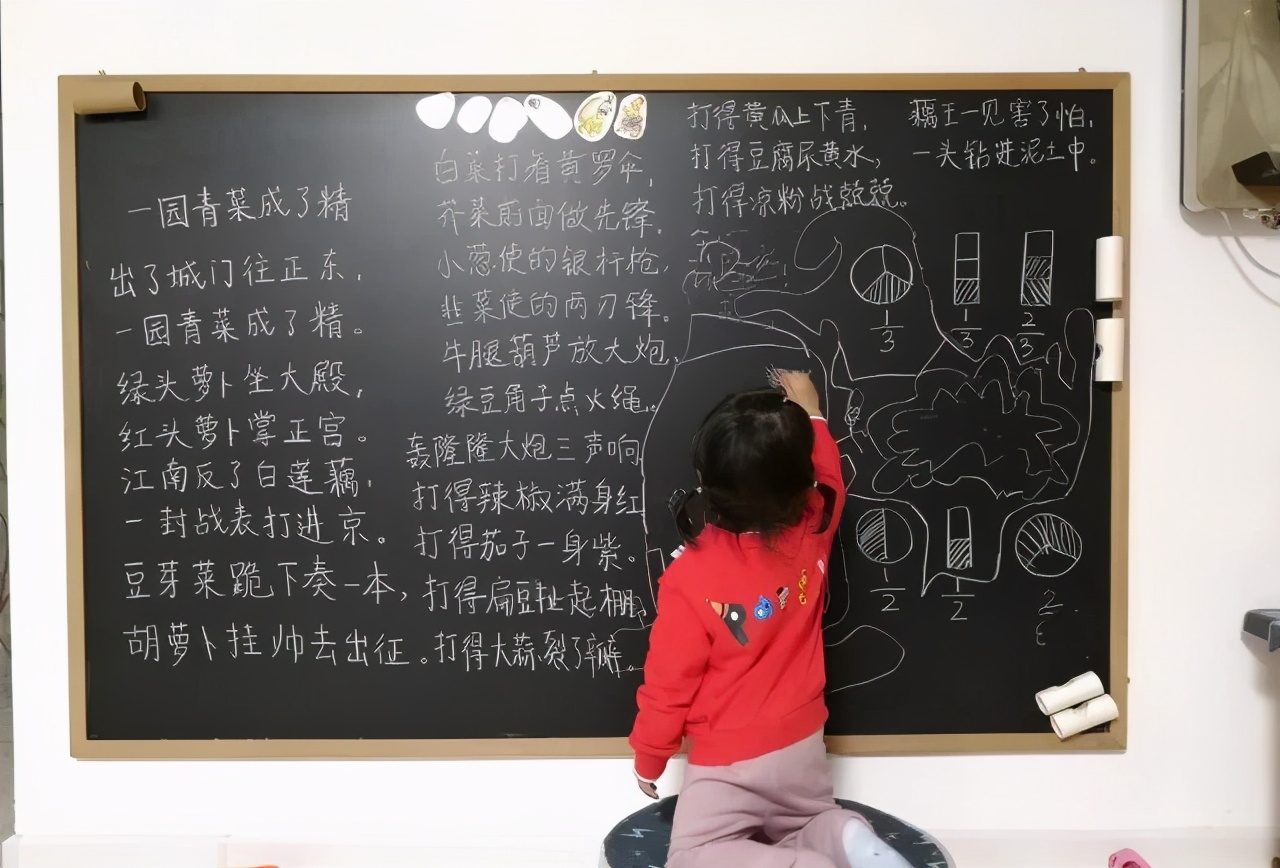 一园青菜成了精
出了城门往正东，
一园青菜成了精。
绿头萝卜坐大殿，
红头萝卜掌正宫。
江南反了白莲藕，
一封战表打进京。
豆芽菜跪下奏一本，
胡萝卜挂帅去出征。
白菜打着黄罗伞，
芥菜前面做先锋。
小葱使的银杆枪，
韭菜使的两刃锋。
牛腿葫芦放大炮，
绿豆角子点火绳。
轰隆隆大炮三声响
打得辣椒满身红
打得茄子一身紫。
打得扁豆扯起棚
打得大蒜裂了瓣。
打得黄瓜上下青，
打得豆腐尿黄水，
打得凉粉战兢兢。
藕王一见害了怕，
一头钻进泥土中。
1/3
1/3
2/3
1/2
1/2